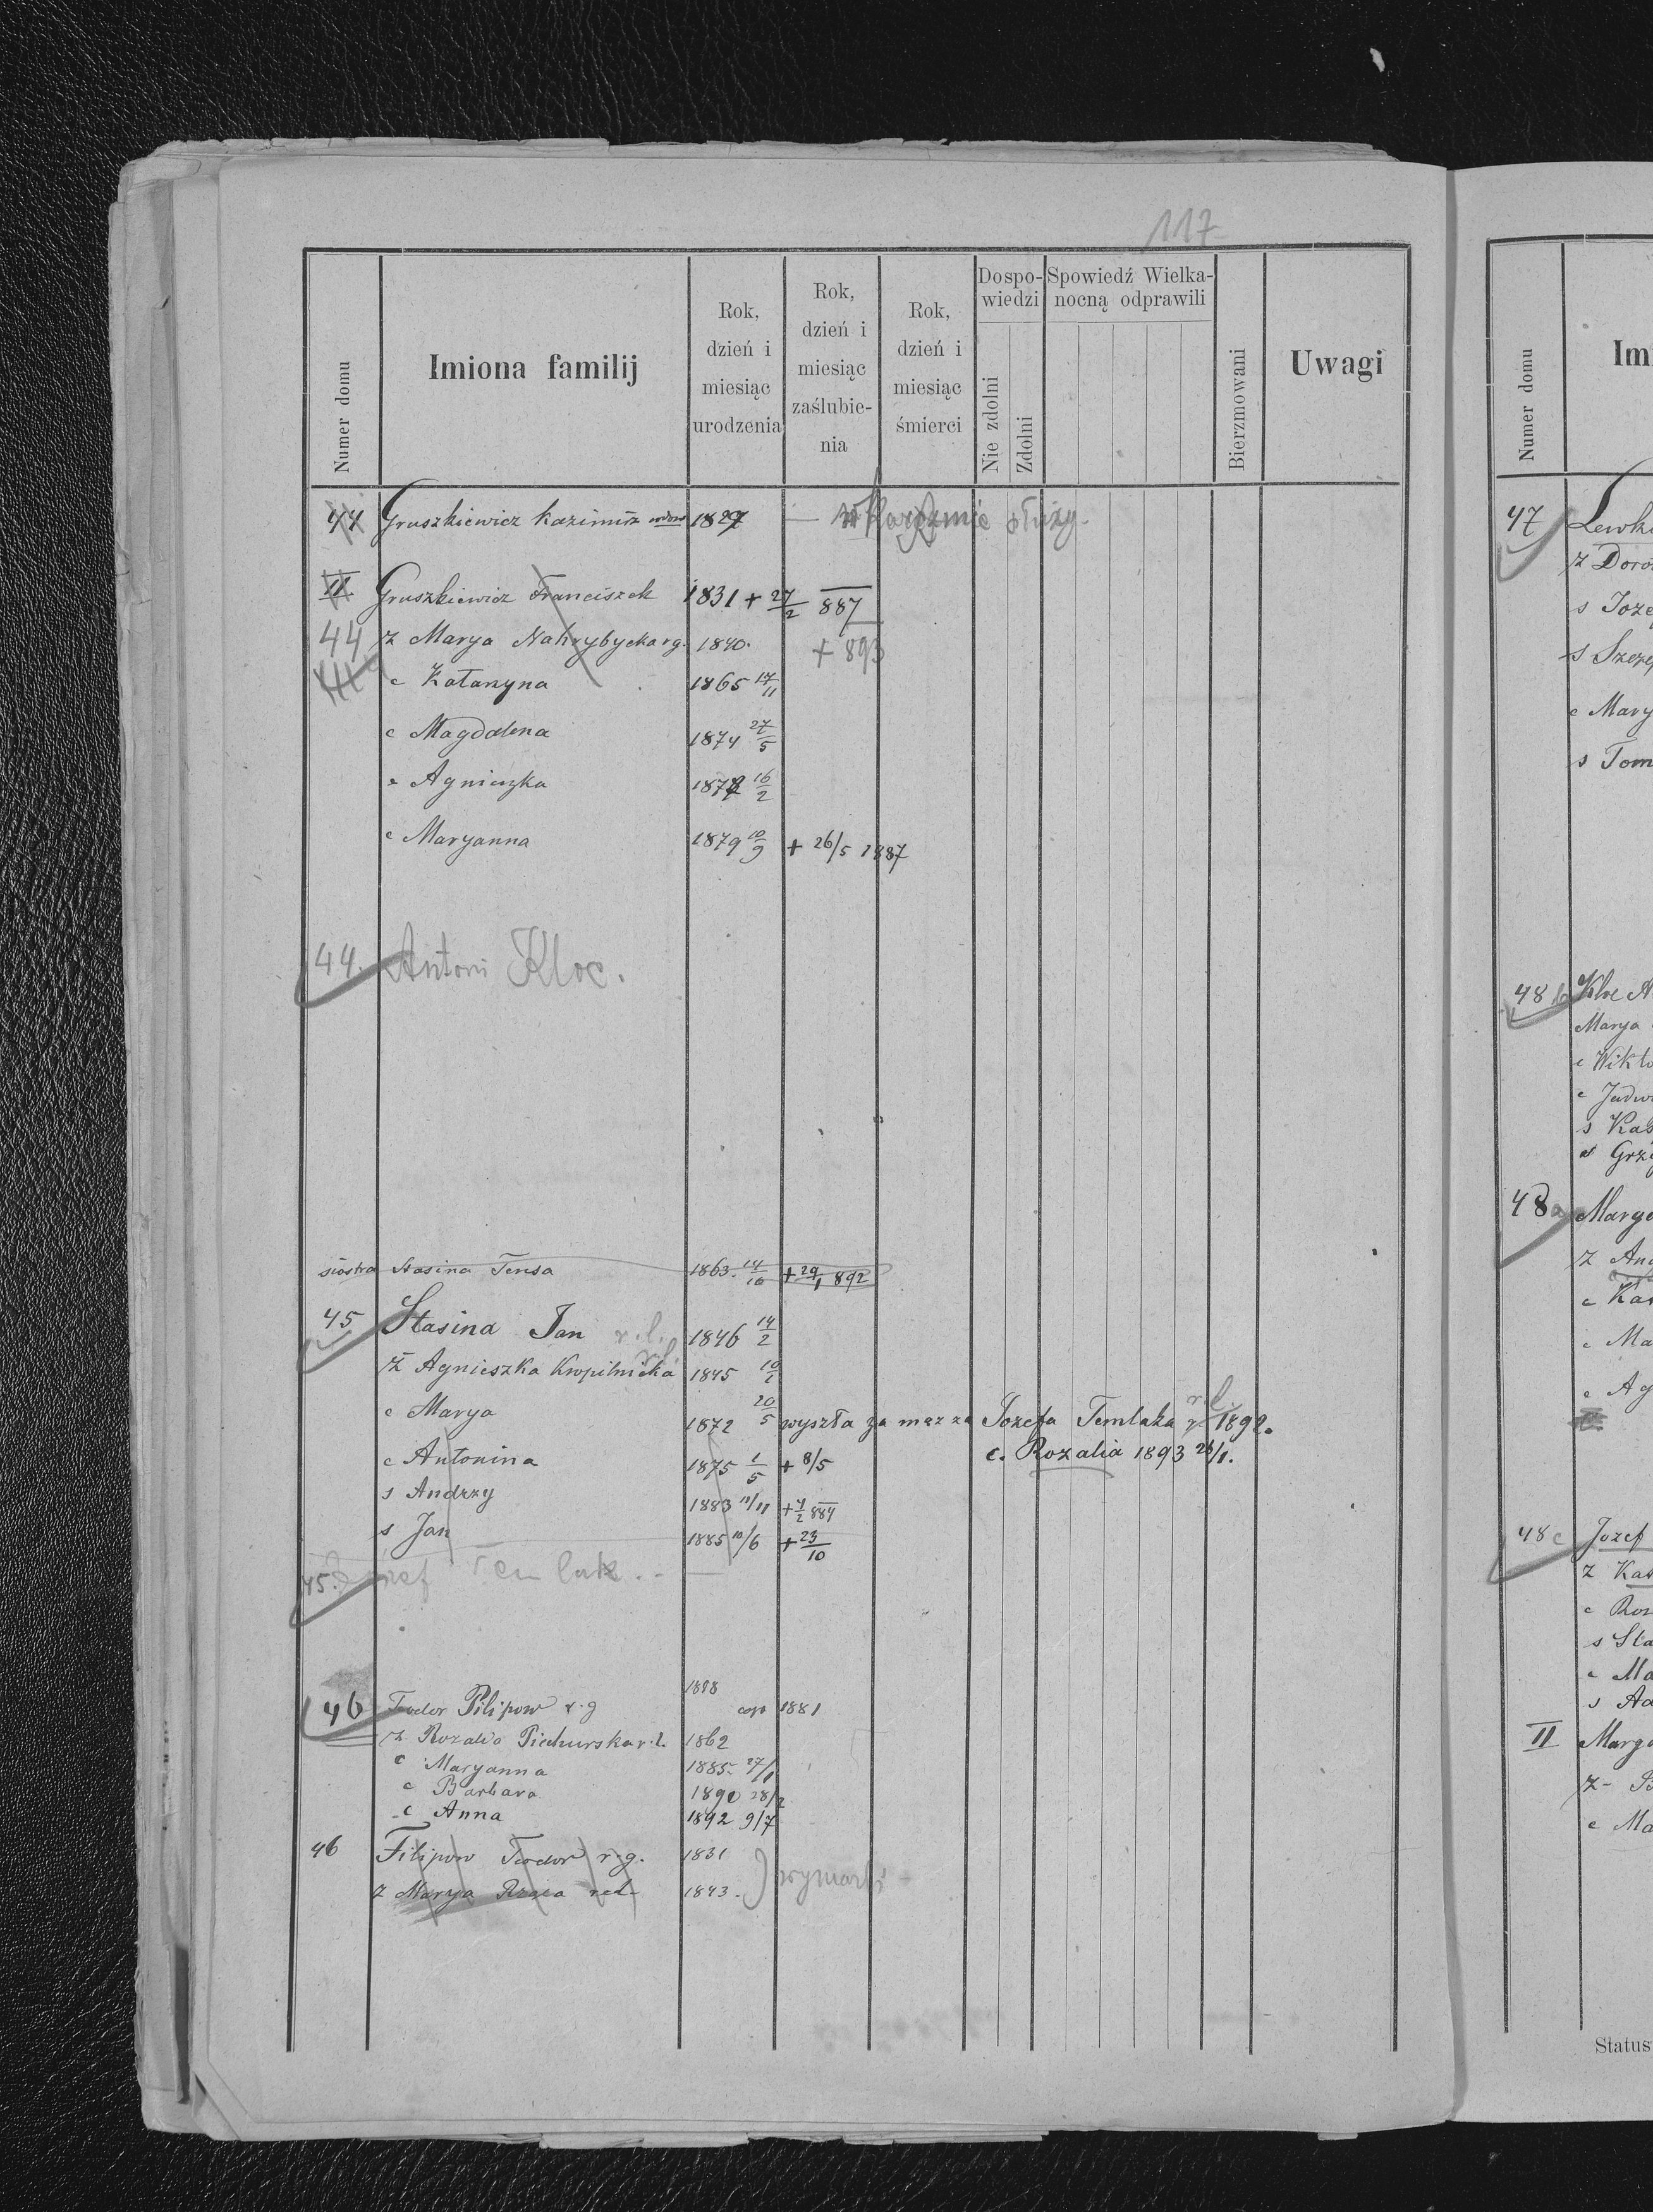 117
Numer domu
Imiona familij
Rok, dzień i miesiąc urodzenia
Rok, dzień i miesiąc zaślubie-nia
Rok, dzień i miesiąc śmierci
Dospo-wiedzi
Nie zdolni
Zdolni
Spowiedź Wielka-nocną odprawili
Bierzmowani
Uwagi
44 Gruszkiewicz Kazimirz 1829 — w Karczmie służy.
II. Gruszkiewicz Franciszek 1831 + 27/2 887
44 z Marya Nahrybycka rg. 1840. + 893
c Katarzyna 1865 17/11
c Magdalena 1874 27/5
c Agnieszka 16/2
c Maryanna 1879 10/9 + 26/5 1887
44. Antoni Kloc.
siostra Stasina Tensa 1863. 14/10 + 29/1 892
45 Stasina Jan r.l. 1846 14/2
ż Agnieszka Kropilnicka r.l. 1845 10/1
c Marya 1872 20/5 wyszła za mąz za Jozefa Temlaka r l 1892.
c. Rozalia 1893 26/1.
c Antonina 1875 1/5 + 8/5
s Andrzy 1883 11/11 + 4/2 884
s Jan 1885 10/6 + 23/10
45. Józef Temlak. -
46 Teodor Pilipow r.g 1858 cop 1881
ż Rozalia Piechurska r.l. 1862
c Maryanna 1885 27/1
c Barbara 1890 28/2
c Anna 1892 9/7
46 Filipow Teodor r.g. 1831
ż Marya Rzasa 1843. } wymarli
47 Lewk
ż Doro
s Joze
s Szcze
c Mary
s Tom
48 b Kloc A
Marya
c Wikto
c Jadwi
s Kas
s Grze
48 a Marga
ż And
c Kas
c Ma
c Ag
48 c Jozef
ż Kas
c Roz
s Sta
c Ma
s Ad
II Marga
ż- B
c Ma
Numer domu
Im
Status